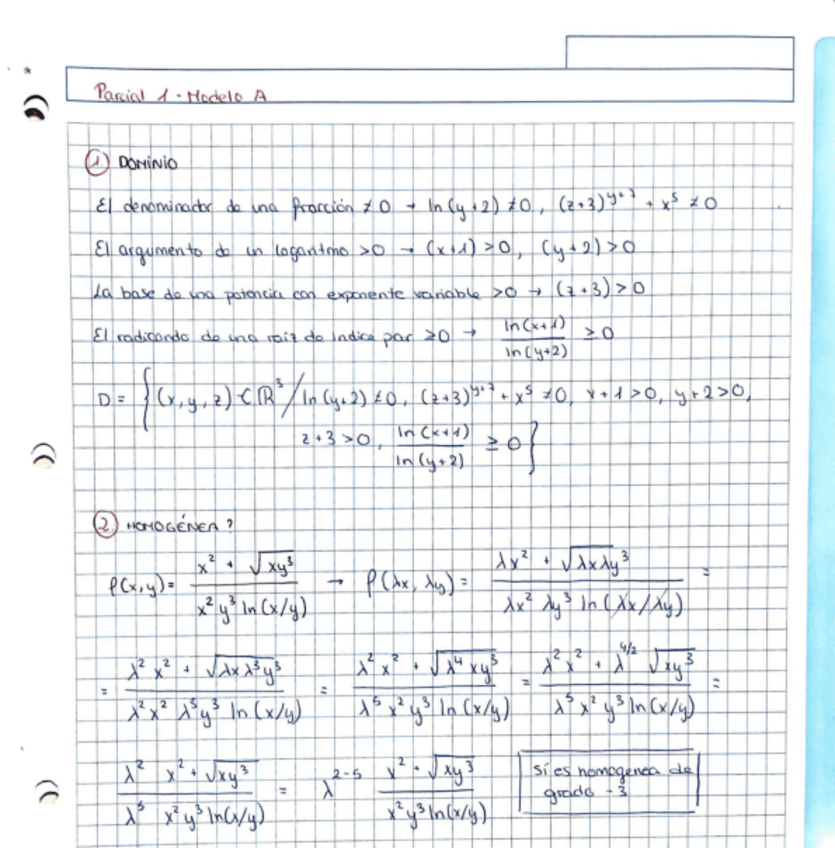 Parcial 1 - Modelo A
1. DOMINIO
El denominador de una fracción ≠ 0 → ln(y+2) ≠ 0, (z+3)^(y+7) + x^5 ≠ 0
El argumento de un logaritmo > 0 → (x+1) > 0, (y+2) > 0
La base de una potencia con exponente variable > 0 → (z+3) > 0
El radicando de una raiz de indice par ≥ 0 → ln(x+1)/ln(y+2) ≥ 0
D = {(x, y, z) ∈ ℝ^3 / ln(y+2) ≠ 0, (z+3)^(y+7) + x^5 ≠ 0, x+1 > 0, y+2 > 0,
z+3 > 0, ln(x+1)/ln(y+2) ≥ 0}
2. HOMOGÉNEA?
f(x,y) = (x² + √(xy³))/(x² y³ ln(x/y)) → f(λx, λy) = (λx² + √(λxλy³))/(λx² λy³ ln(λx/λy)) =
= (λ² x² + √(λxλ³y³))/(λ²x² λ³y³ ln(x/y)) = (λ² x² + √(λ⁴ xy³))/(λ⁵ x² y³ ln(x/y)) = (λ² x² + λ^(4/2) √(xy³))/(λ⁵ x² y³ ln(x/y)) =
λ²/λ⁵ (x² + √(xy³))/(x² y³ ln(x/y)) = λ^(2-5) (x² + √(xy³))/(x² y³ ln(x/y))
sí es homogenea de
grado -3